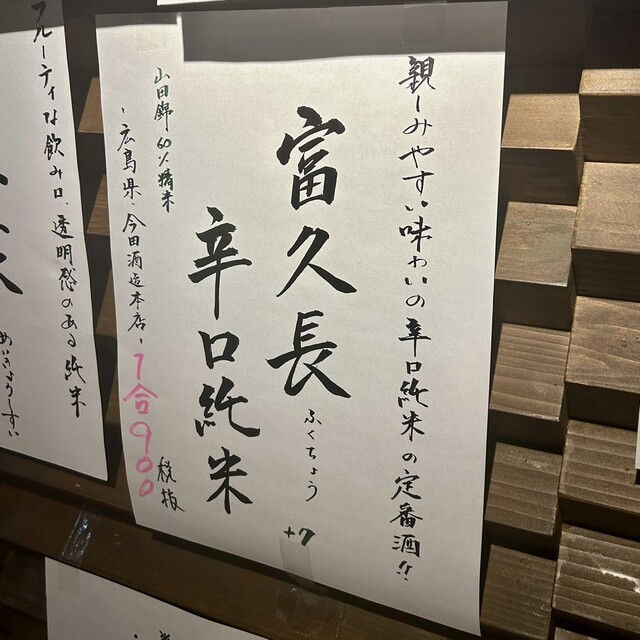 親しみやすい味わいの辛口純米の定番酒!!
富久長
ふくちょう
+7
辛口純米
山田錦 60%精米
-広島県 今田酒造本店-
1合900
税抜
フルーティな飲み口、透明感のある純米